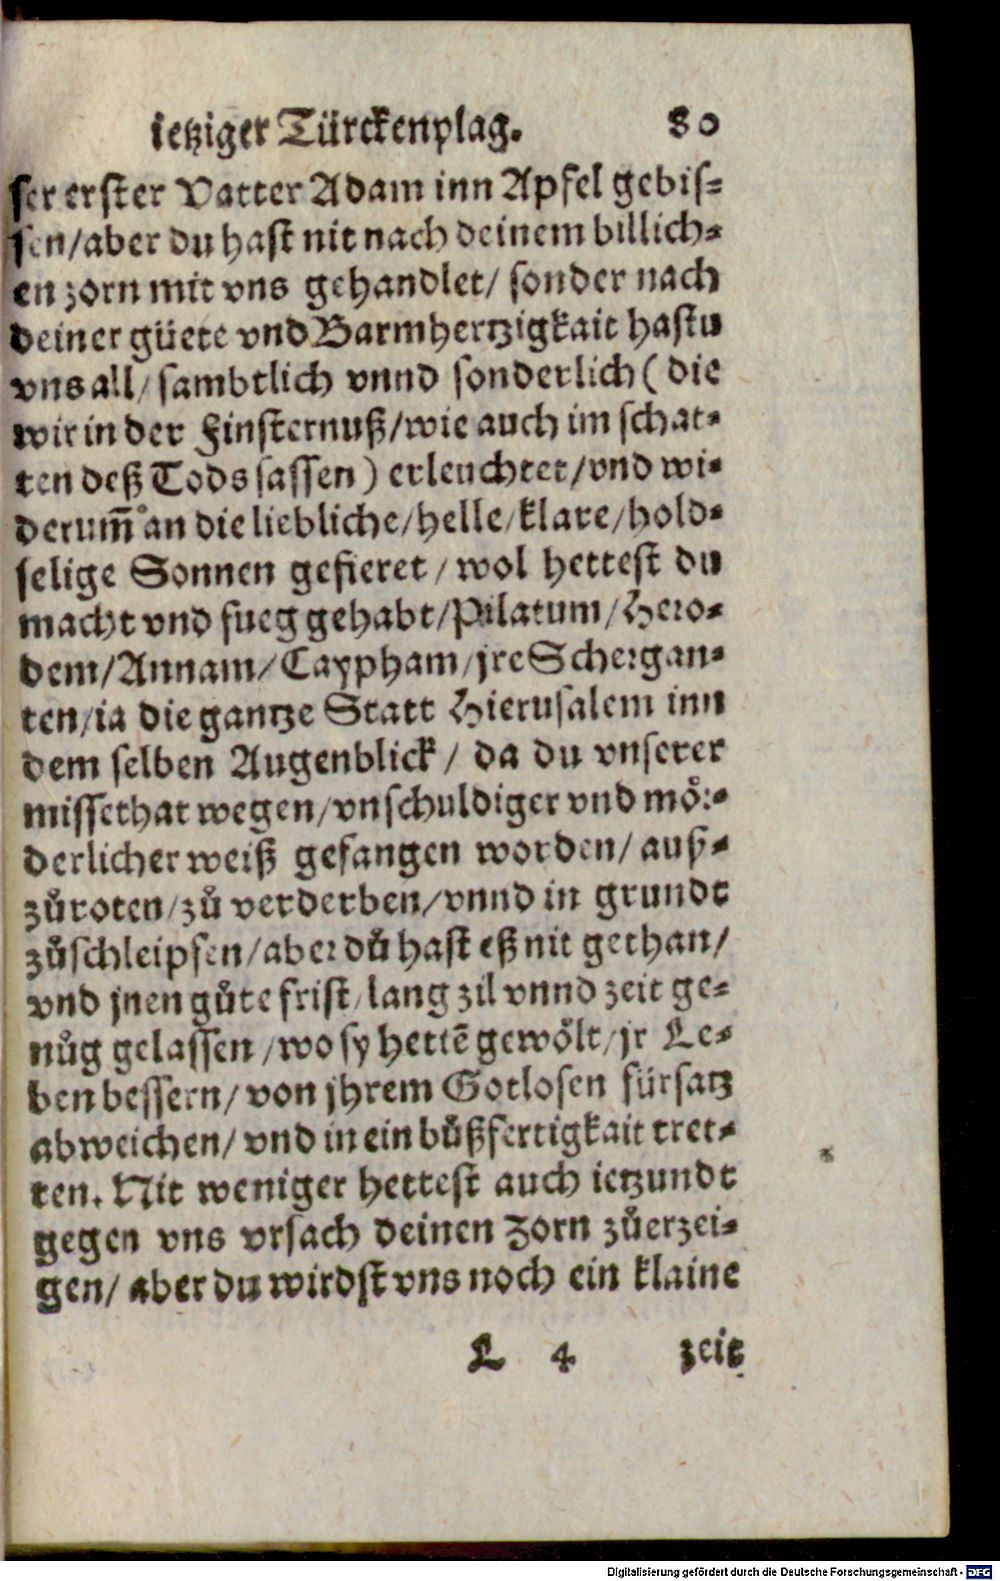 ietziger Türckenplag. 80
ser erster Vatter Adam inn Apfel gebis-
sen/aber du hast nit nach deinem billich-
en zorn mit vns gehandlet/ sonder nach
deiner güete vnd Barmhertzigkait hastu
vns all/ sambtlich vnnd sonderlich ( die
wir in der Finsternuß/wie auch im schat-
ten deß Tods sassen) erleuchtet/vnd wi-
derum̃ an die liebliche/helle/klare/hold-
selige Sonnen gefieret/ wol hettest du
macht vnd fueg gehabt/Pilatum/Hero-
dem/Annam/Caypham/jre Schergan-
ten/ia die gantze Statt Hierusalem inn
dem selben Augenblick/ da du vnserer
missethat wegen/vnschuldiger vnd moͤr-
derlicher weiß gefangen worden/ auß-
zůroten/zů verderben/vnnd in grundt
zůschleipfen/aber dů hast eß nit gethan/
vnd jnen gůte frist/lang zil vnnd zeit ge-
nůg gelassen/wo sy hettẽ gewoͤlt/jr Le-
ben bessern/ von jhrem Gotlosen fürsatz
abweichen/ vnd in ein bůßfertigkait tret-
ten. Nit weniger hettest auch ietzundt
gegen vns vrsach deinen Zorn zůerzei-
gen/ aber du wirdst vns noch ein klaine
L 4 zeit
Digitalisierung gefördert durch die Deutsche Forschungsgemeinschaft - DFG